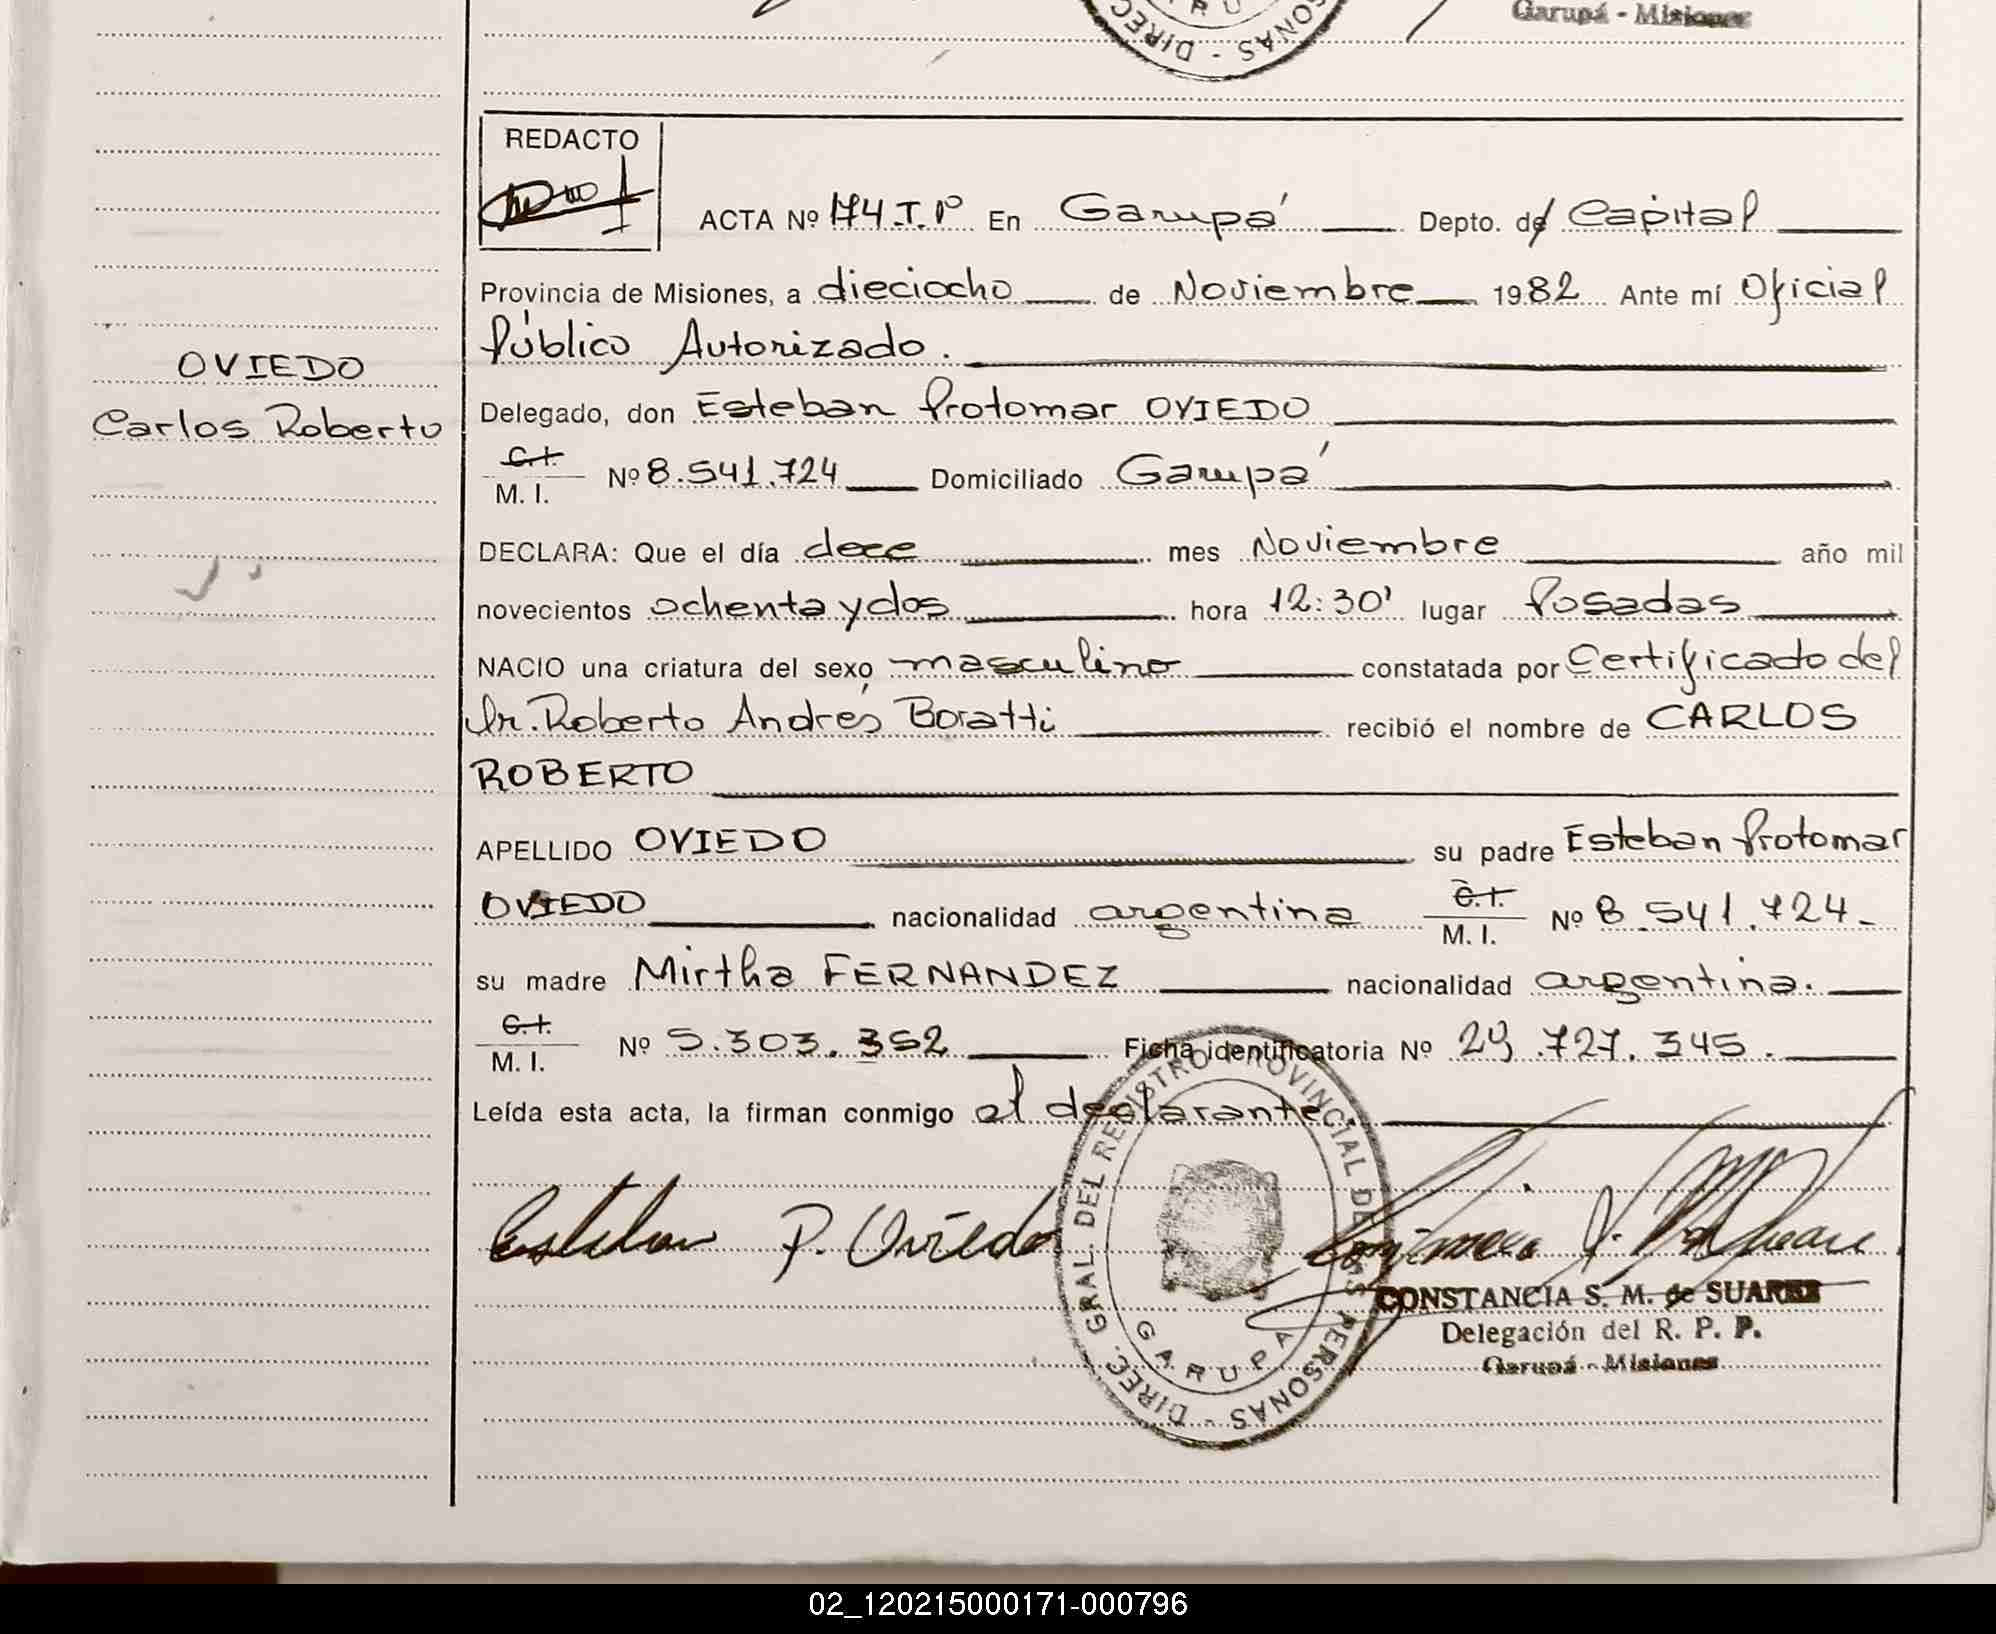 Garupá - Misiones
DIREC
SONAS - DIREC
REDACTO
ACTA Nº 174.T.Iº En Garupá Depto. de Capital
Provincia de Misiones, a dieciocho de Noviembre 1982 Ante mí Oficial
Público Autorizado.
OVIEDO
Carlos Roberto
Delegado, don Esteban Protomar OVIEDO
C.I.
M. I. Nº 8.541.724 Domiciliado Garupá
DECLARA: Que el día doce mes Noviembre año mil
novecientos ochenta y dos hora 12:30' lugar Posadas
NACIO una criatura del sexo masculino constatada por Certificado del
Dr. Roberto Andrés Boratti recibió el nombre de CARLOS
ROBERTO
APELLIDO OVIEDO su padre Esteban Protomar
OVIEDO nacionalidad argentina C.I. M. I. Nº 8.541.724.
su madre Mirtha FERNANDEZ nacionalidad argentina.
C.I.
M. I. Nº 5.303.352 Ficha identificatoria Nº 29.727.345.
Leída esta acta, la firman conmigo el declarante.
Esteban P. Oviedo
DIREC. GRAL. DEL REGISTRO PROVINCIAL DE LAS PERSONAS -
GARUPA
CONSTANCIA S. M. de SUAREZ
Delegación del R. P. P.
Garupá - Misiones
02_120215000171-000796